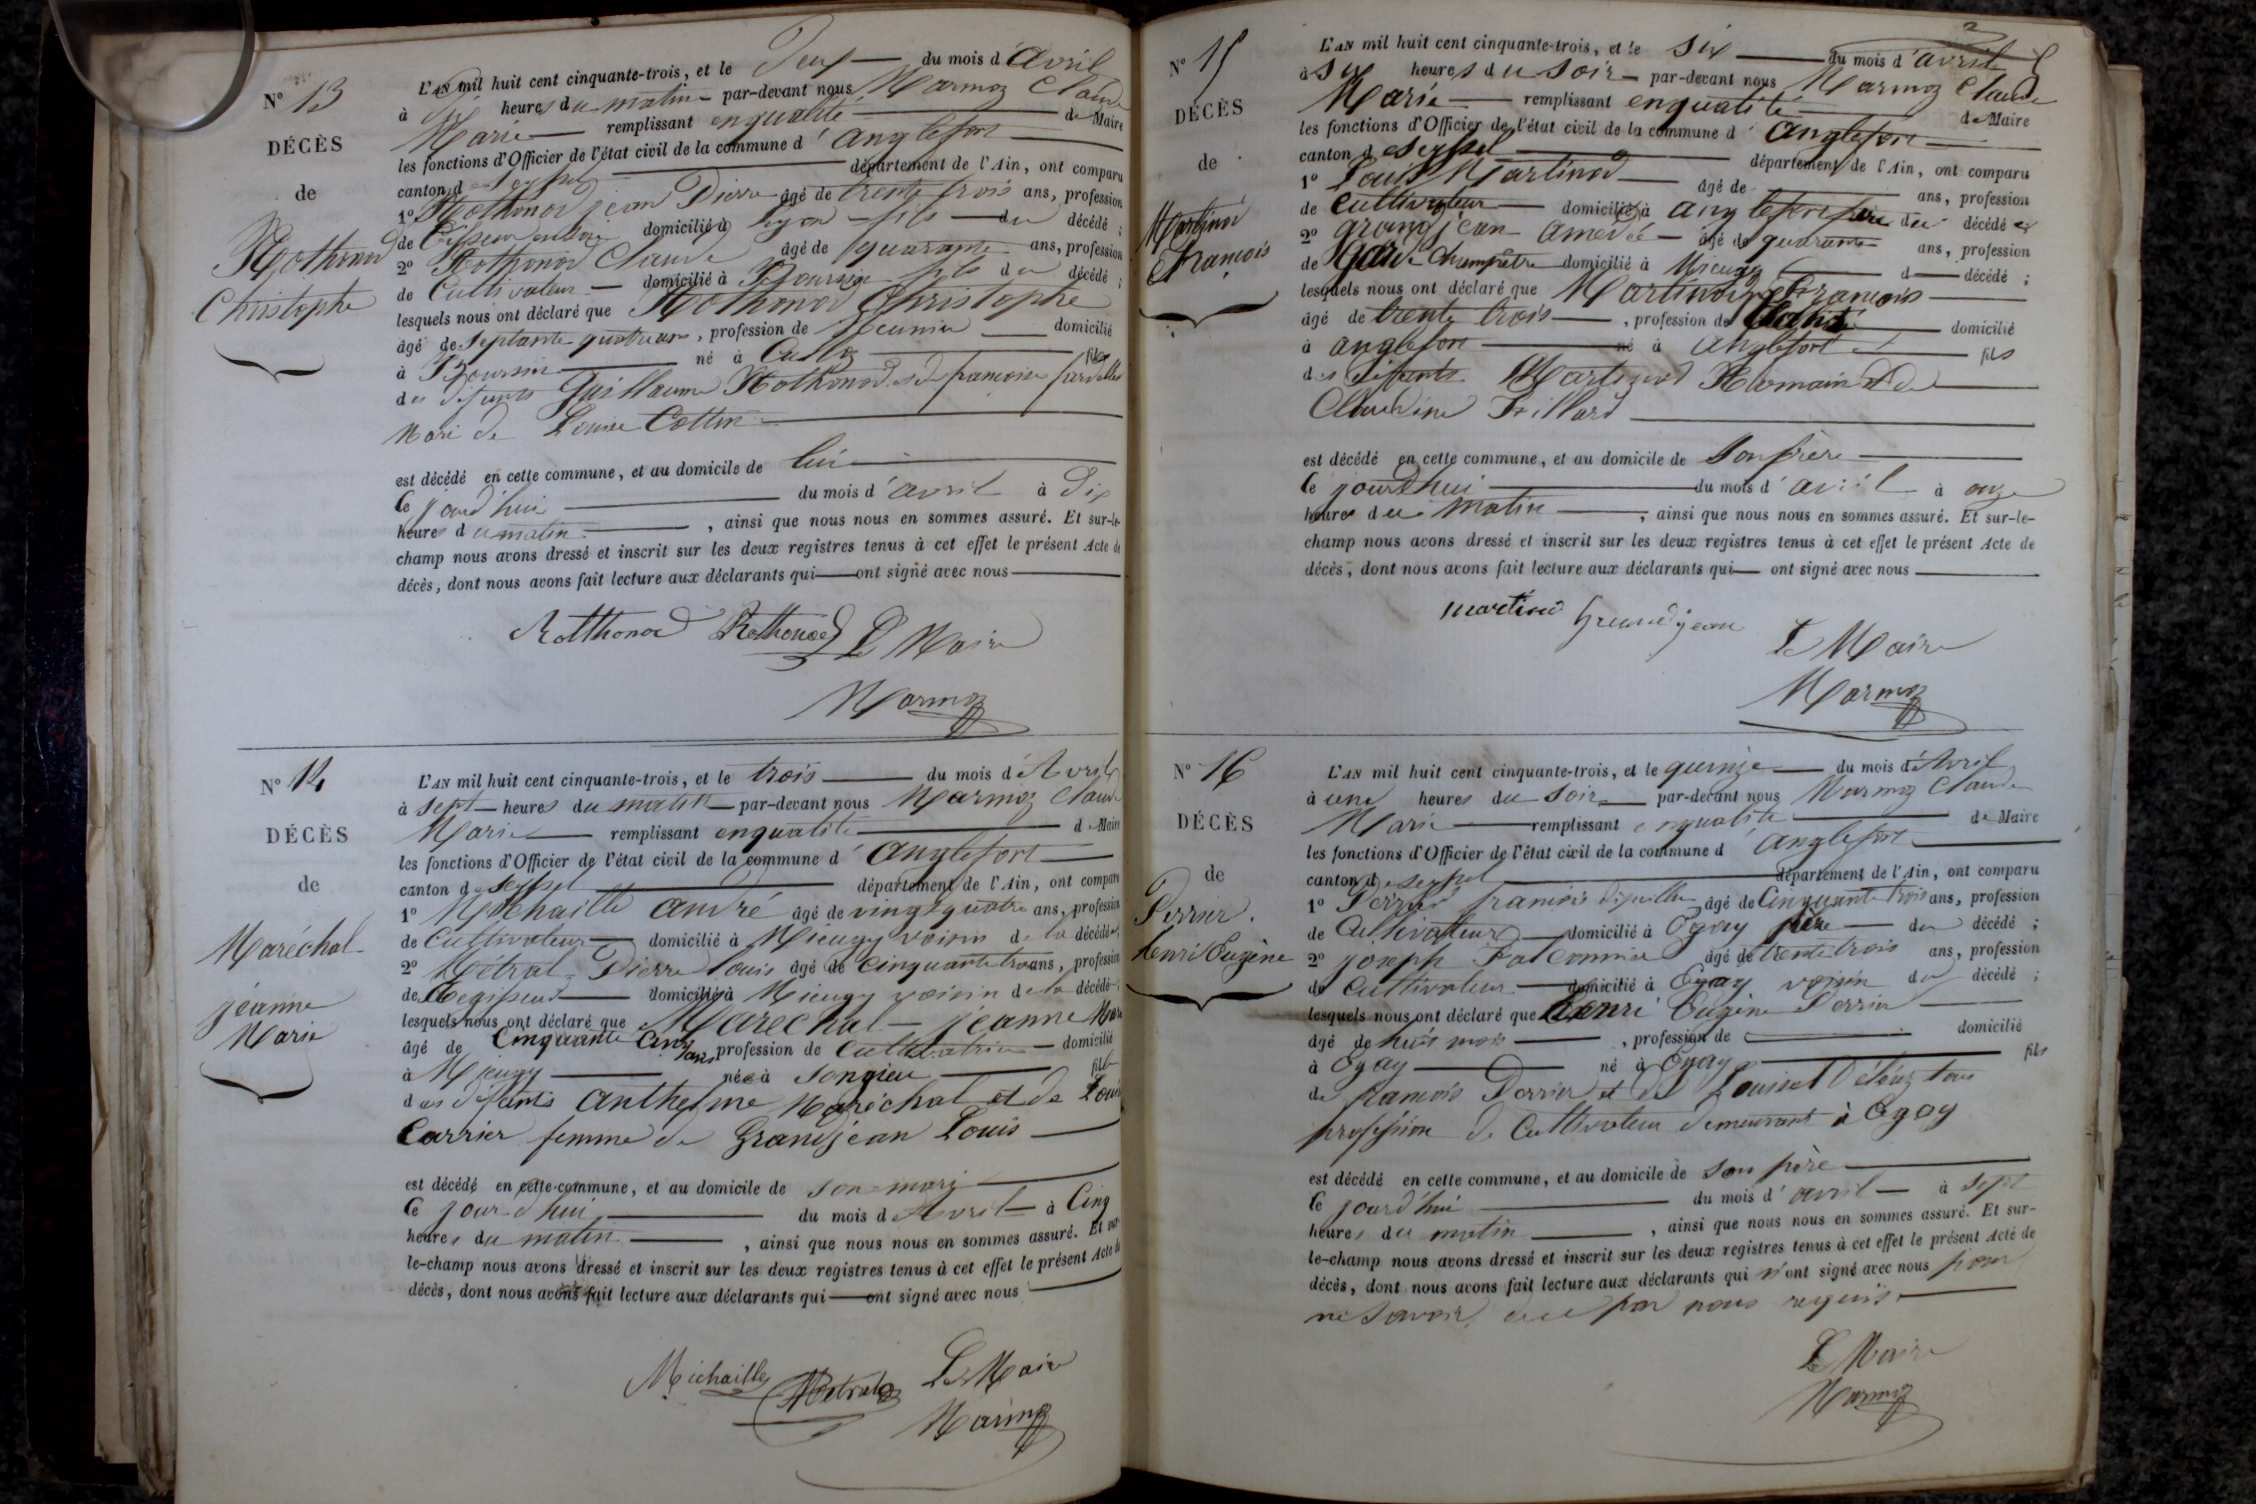 N° 13
DÉCÈS
de
Rothonod
Christophe
L'AN mil huit cent cinquante-trois, et le Deux du mois d'avril
à dix heures du matin par-devant nous Marmoz Claude
Marie remplissant en qualité de Maire
les fonctions d'Officier de l'état civil de la commune d'anglefort
canton de seyssel département de l'Ain, ont comparu
1° Rothonod jean Pierre âgé de trente trois ans, profession
de domicilié à lyon fils du décédé ;
2° Rothonod Claude âgé de quarante ans, profession
de Cultivateur domicilié à fils du décédé ;
lesquels nous ont déclaré que Rothonod Christophe
âgé de septante quatre ans, profession de Meunier domicilié
à né à Culoz fils
des défunts Guillaume Rothonod et de francoise
Mari de Louise Cottin
est décédé en cette commune, et au domicile de lui
Ce jourd'hui du mois d'avril à dix
heures du matin, ainsi que nous nous en sommes assuré. Et sur-le-
champ nous avons dressé et inscrit sur les deux registres tenus à cet effet le présent Acte de
décès, dont nous avons fait lecture aux déclarants qui ont signé avec nous
Rotthonod Rothonod Le Maire
Marmoz
N° 14
DÉCÈS
de
Maréchal
jeanne
Marie
L'AN mil huit cent cinquante-trois, et le trois du mois d'Avril
à sept heures du matin par-devant nous Marmoz Claude
Marie remplissant en qualité de Maire
les fonctions d'Officier de l'état civil de la commune d'anglefort
canton de seyssel département de l'Ain, ont comparu
1° Michaille andré âgé de vingt quatre ans, profession
de Cultivateur domicilié à Mieugy voisin de la décédée ;
2° Métral Pierre Louis âgé de cinquante trois ans, profession
de Regisseur domicilié à Mieugy voisin de la décédée ;
lesquels nous ont déclaré que Marechal jeanne Marie
âgé de Cinquante Cinq ans, profession de Cultivatrice domicilié
à Mieugy née à songieu fille
des défunts anthelme Maréchal et de Louise
Carrier femme de Grandjean Louis
est décédé en cette commune, et au domicile de son mari
Ce jourd'hui du mois d'Avril à Cinq
heures du matin, ainsi que nous nous en sommes assuré. Et sur-
le-champ nous avons dressé et inscrit sur les deux registres tenus à cet effet le présent Acte de
décès, dont nous avons fait lecture aux déclarants qui ont signé avec nous
Michaille Métral Le Maire
Marmoz
N° 15
DÉCÈS
de
Martinod
François
L'AN mil huit cent cinquante-trois, et le six du mois d'avril
à six heures du soir par-devant nous Marmoz Claude
Marie remplissant en qualité de Maire
les fonctions d'Officier de l'état civil de la commune d'anglefort
canton de seyssel département de l'Ain, ont comparu
1° Louis Martinod âgé de ans, profession
de Cultivateur domicilié à anglefort frère du décédé
2° grandjean Amédée âgé de quarante ans, profession
de Garde Champêtre domicilié à Mieugy d décédé ;
lesquels nous ont déclaré que Martinod François
âgé de trente trois, profession de domicilié
à anglefort né à anglefort fils
des défunts Martinod Romain et de
Claudine Brillard
est décédé en cette commune, et au domicile de son frère
Ce jourd'hui du mois d'avril à onze
heures du matin, ainsi que nous nous en sommes assuré. Et sur-le-
champ nous avons dressé et inscrit sur les deux registres tenus à cet effet le présent Acte de
décès, dont nous avons fait lecture aux déclarants qui ont signé avec nous
martinod Grandjean
Le Maire
Marmoz
N° 16
DÉCÈS
de
Perrier
henri Eugène
L'AN mil huit cent cinquante-trois, et le quinze du mois d'Avril
à une heures du soir par-devant nous Marmoz Claude
Marie remplissant en qualité de Maire
les fonctions d'Officier de l'état civil de la commune d'anglefort
canton de seyssel département de l'Ain, ont comparu
1° Perrier francois âgé de Cinquante trois ans, profession
de Cultivateur domicilié à Ogay père du décédé ;
2° joseph Falconnier âgé de trente trois ans, profession
de Cultivateur domicilié à Ogay voisin du décédé ;
lesquels nous ont déclaré que henri Eugène Perrier
âgé de huit mois, profession de domicilié
à Ogay né à Ogay fils
de francois Perrier et de Louise tous
profession de Cultivateur demeurant à Ogay
est décédé en cette commune, et au domicile de son père
Ce jourd'hui du mois d'avril à sept
heures du matin, ainsi que nous nous en sommes assuré. Et sur-
le-champ nous avons dressé et inscrit sur les deux registres tenus à cet effet le présent Acte de
décès, dont nous avons fait lecture aux déclarants qui n'ont signé avec nous pour
ne savoir par nous requis
Le Maire
Marmoz